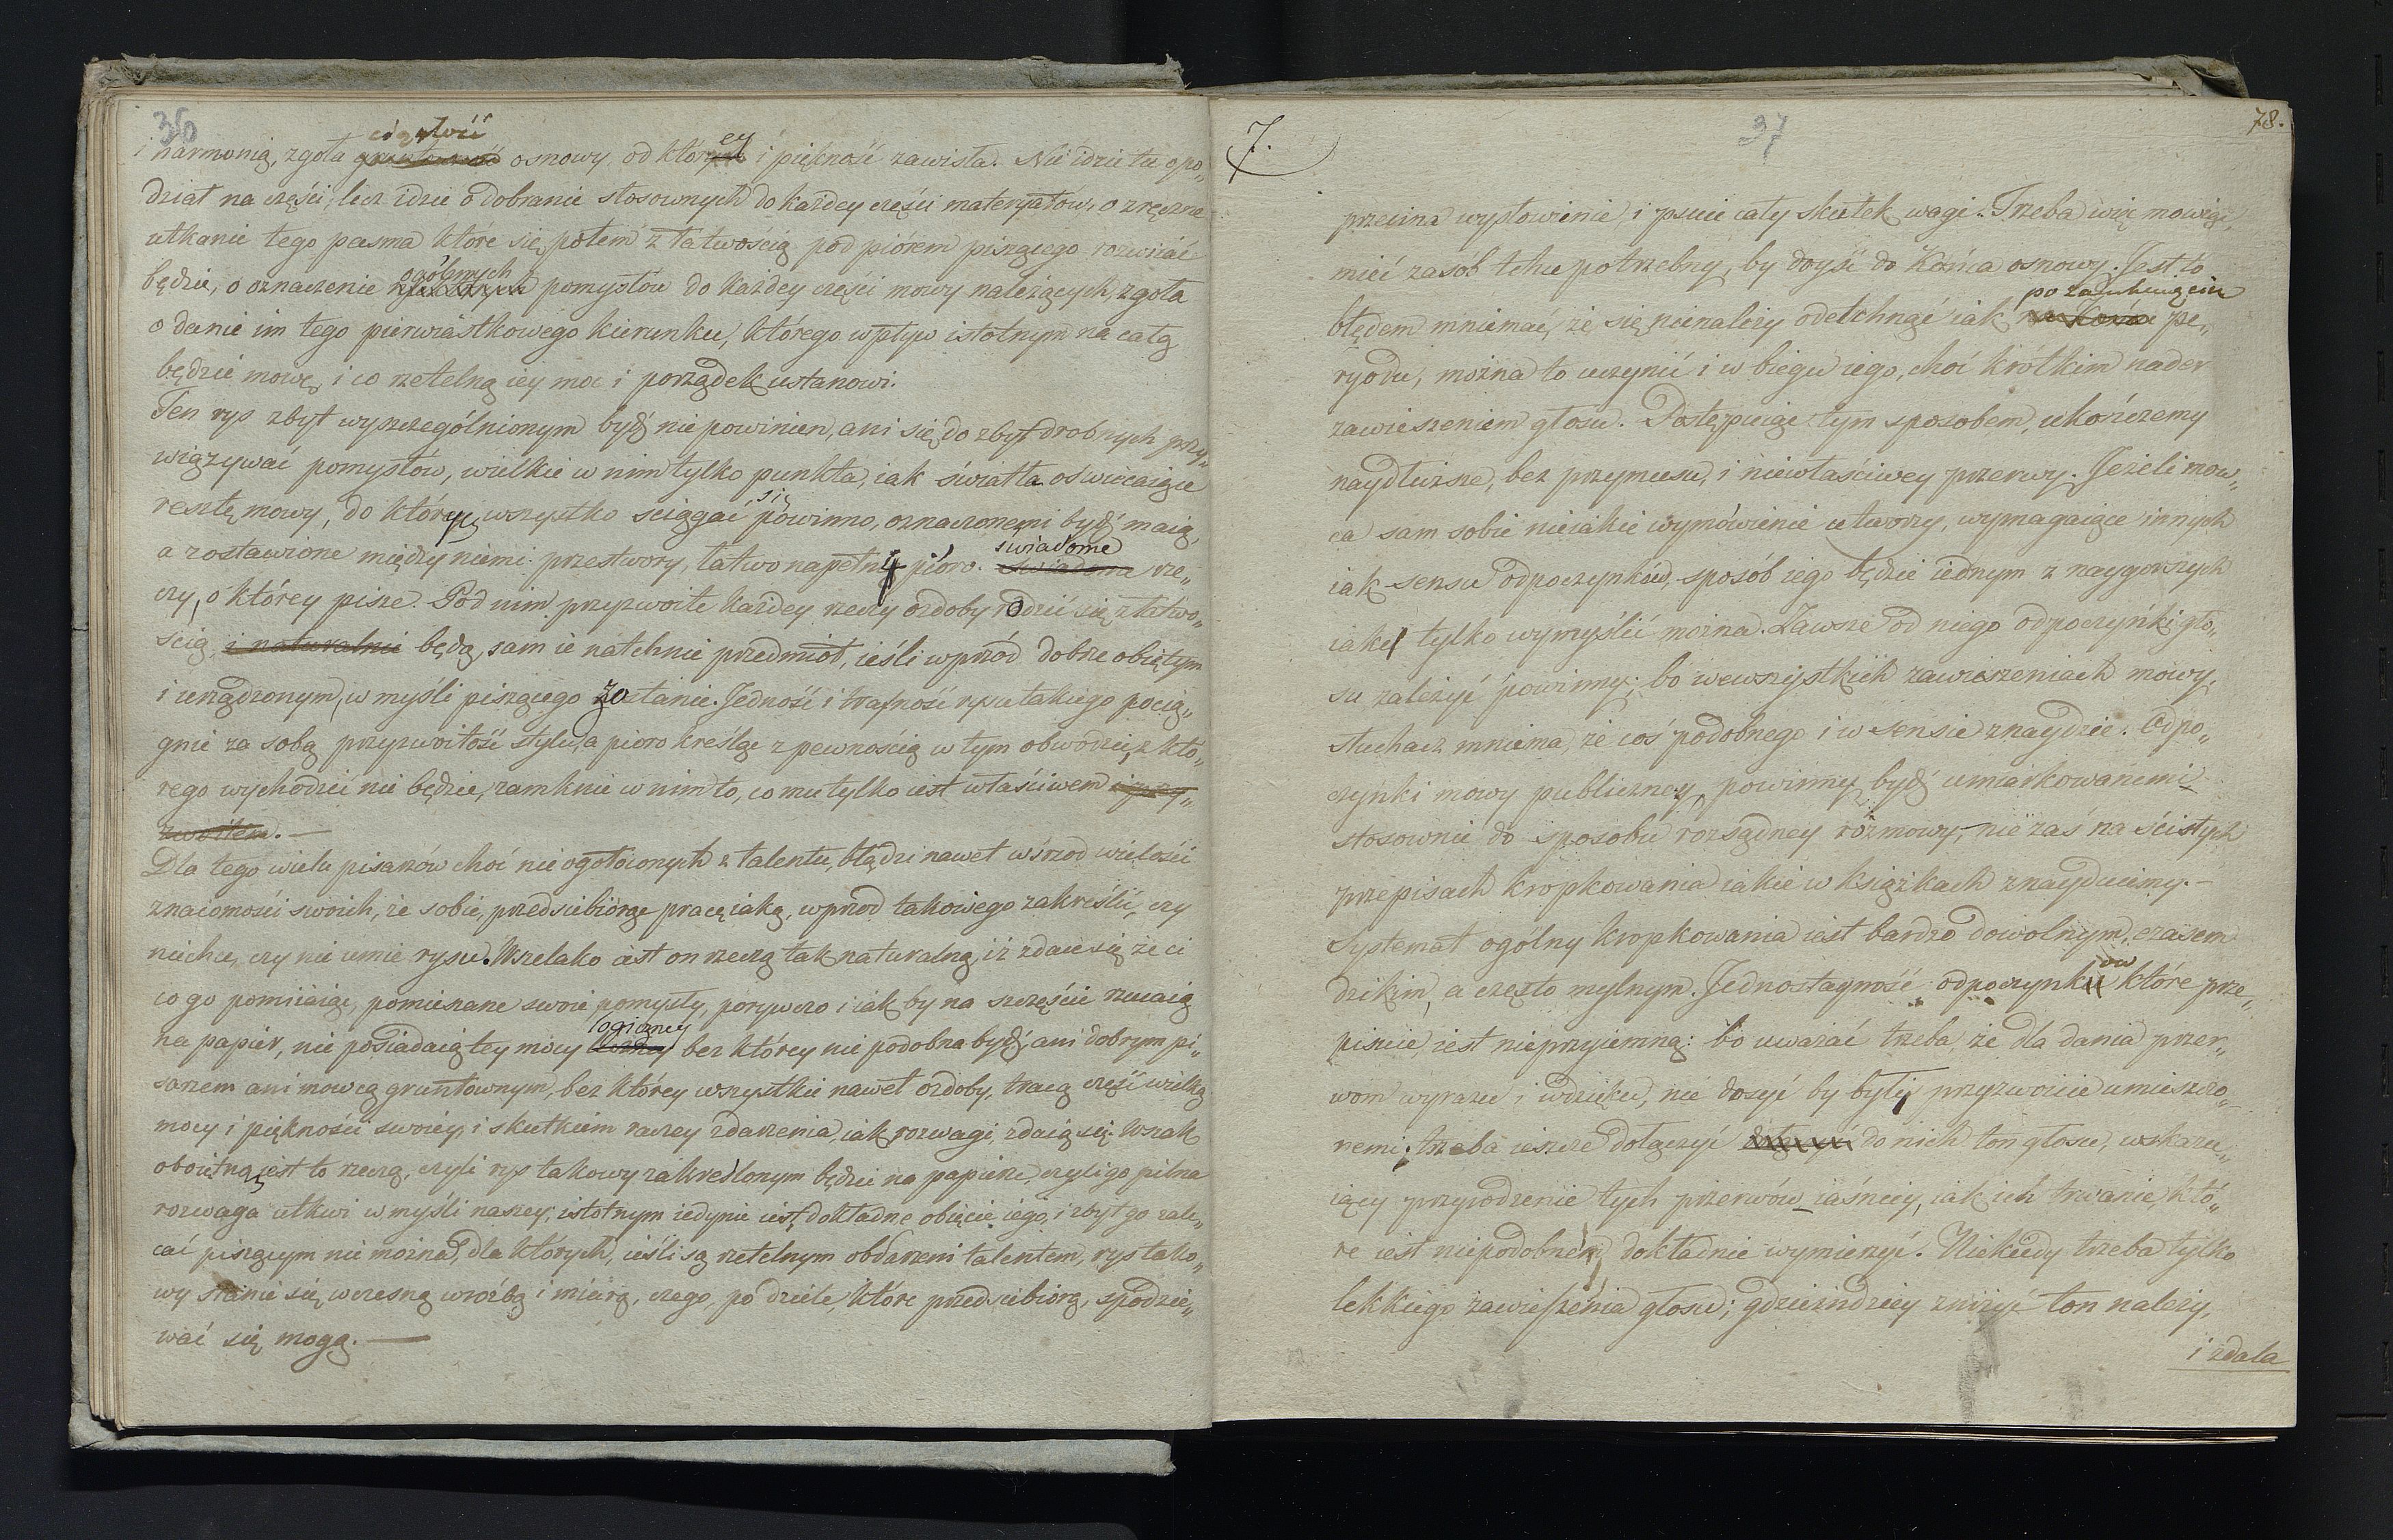 36
i harmonią, zgoła ciągłość osnowy od którey i piękność zawisła. Nie idzie tu o po„
dział na części, lecz idzie o dobranie stosownych do każdey części materyałów, o zręczne
utkanie tego pasma które się potem z łatwością pod piórem piszącego rozwiiać
będzie, o oznaczenie ogólnych pomysłów do każdey części mowy należących, zgoła
o danie im tego pierwiastkowego kierunku, którego wpływ istotnym na całą
będzie mowę, i co rzetelną iey moc i porządek ustanowi.
Ten rys zbyt wyszczególnionym bydź nie powinien, ani się do zbyt drobnych przy„
wiązywać pomysłów, wielkie w nim tylko punkta, iak światła oświecaiące
resztę mowy, do których wszystko ściągać się powinno, oznaczonemi bydź maią,
a zostawione między niemi przestwory, łatwo napełni pióro świadome rze„
czy, o którey pisze. Pod nim przyzwoite każdey rzeczy ozdoby rodzić się z łatwo„
ścią i naturalnie będą, sam ie natchnie przedmiot, ieśli wprzód dobrze obiętym
i urządzonym w myśli piszącego zostanie. Jedność i trafność rysu takiego pocią„
gnie za sobą przyzwoitość stylu, a pioro kreśląc z pewnością w tym obwodzie, z któ„
rego wychodzić nie będzie, zamknie w nim to, co mu tylko iest właściwem i przy„
zwoitem. —
Dla tego wielu pisarzów choć nie ogołoconych z talentu, błądzi nawet wśrzod wielości
znaiomości swoich, że sobie, przedsiebiorąc pracę iaką, wprzod takowego zakreślić, czy
niechce, czy nie umie rysu. Wszelako iest on rzeczą tak naturalną, iż zdaie się że ci
co go pomiiaiąc, pomieszane swoie pomysły, porywczo i iak by na szczęście rzucaią
na papier, nie posiadaią tey mocy logiczney bez którey nie podobna bydź, ani dobrym pi„
sarzem ani mowcą gruntownym, bez którey wszystkie nawet ozdoby, tracą część wielką
mocy i piękności swoiey, i skutkiem raczey zdarzenia, iak rozwagi, zdaią się. Wszak
oboiętną iest to rzeczą, czyli rys takowy zakreślonym będzie na papierze, czyli go pilna
rozwaga utkwi w myśli naszey, istotnym iedynie iest dokładne obięcie iego, i zbyt go zale„
cać piszącym nie można, dla których, ieśli są rzetelnym obdarzeni talentem, rys tako„
wy stanie się wczesną wróżbą i miarą, czego, po dziele, które przedsiebiorą, spodzie„
wać się mogą. —
7.
37
78.
przecina wysłowienie, i psuie cały skutek wagi. Trzeba więc mowiąc,
mieć zasób tchu potrzebny, by doyść do końca osnowy. Jest to
błędem mniemać, że się nienależy odetchnąć iak po zamknięciu pe„
ryodu, można to uczynić i w biegu iego, choć krótkim nader
zawieszeniem głosu. Postępuiąc tym sposobem, ukończemy
naydłuższe, bez przymusu, i niewłaściwey przerwy. Jeżeli mow„
ca sam sobie nieiakie wymówienie utworzy, wymagaiące innych
iak sensu odpoczynków, sposób iego będzie iednym z naygorszych
iaki tylko wymyślić można. Zawsze od niego odpoczynki gło„
su zależyć powinny; bo wewszystkich zawieszeniach mowy,
słuchacz mniema, że coś podobnego i w sensie znaydzie. Odpo„
czynki mowy publiczney, powinny bydź umiarkowanemi
stosownie do sposobu rozsądney rozmowy, nie zaś na ścisłych
przepisach kropkowania iakie w książkach znayduiemy. —
Systemat ogólny kropkowania iest bardzo dowolnym, czasem
dzikim, a często mylnym. Jednostayność odpoczynków które prze„
pisuie, iest nieprzyiemną: bo uważać trzeba, że dla dania przer„
wom wyrazu i wdzięku, nie dosyć by były przyzwoicie umieszczo„
nemi; trzeba ieszcze dołączyć do nich ton głosu, wskazu„
iący przyrodzenie tych przerwów iaśniey, iak ich trwanie, któ„
re iest niepodobnem, dokładnie wymierzyć. Niekiedy trzeba tylko
lekkiego zawieszenia głosu; gdzieindziey zniżyć ton należy,
i zdala